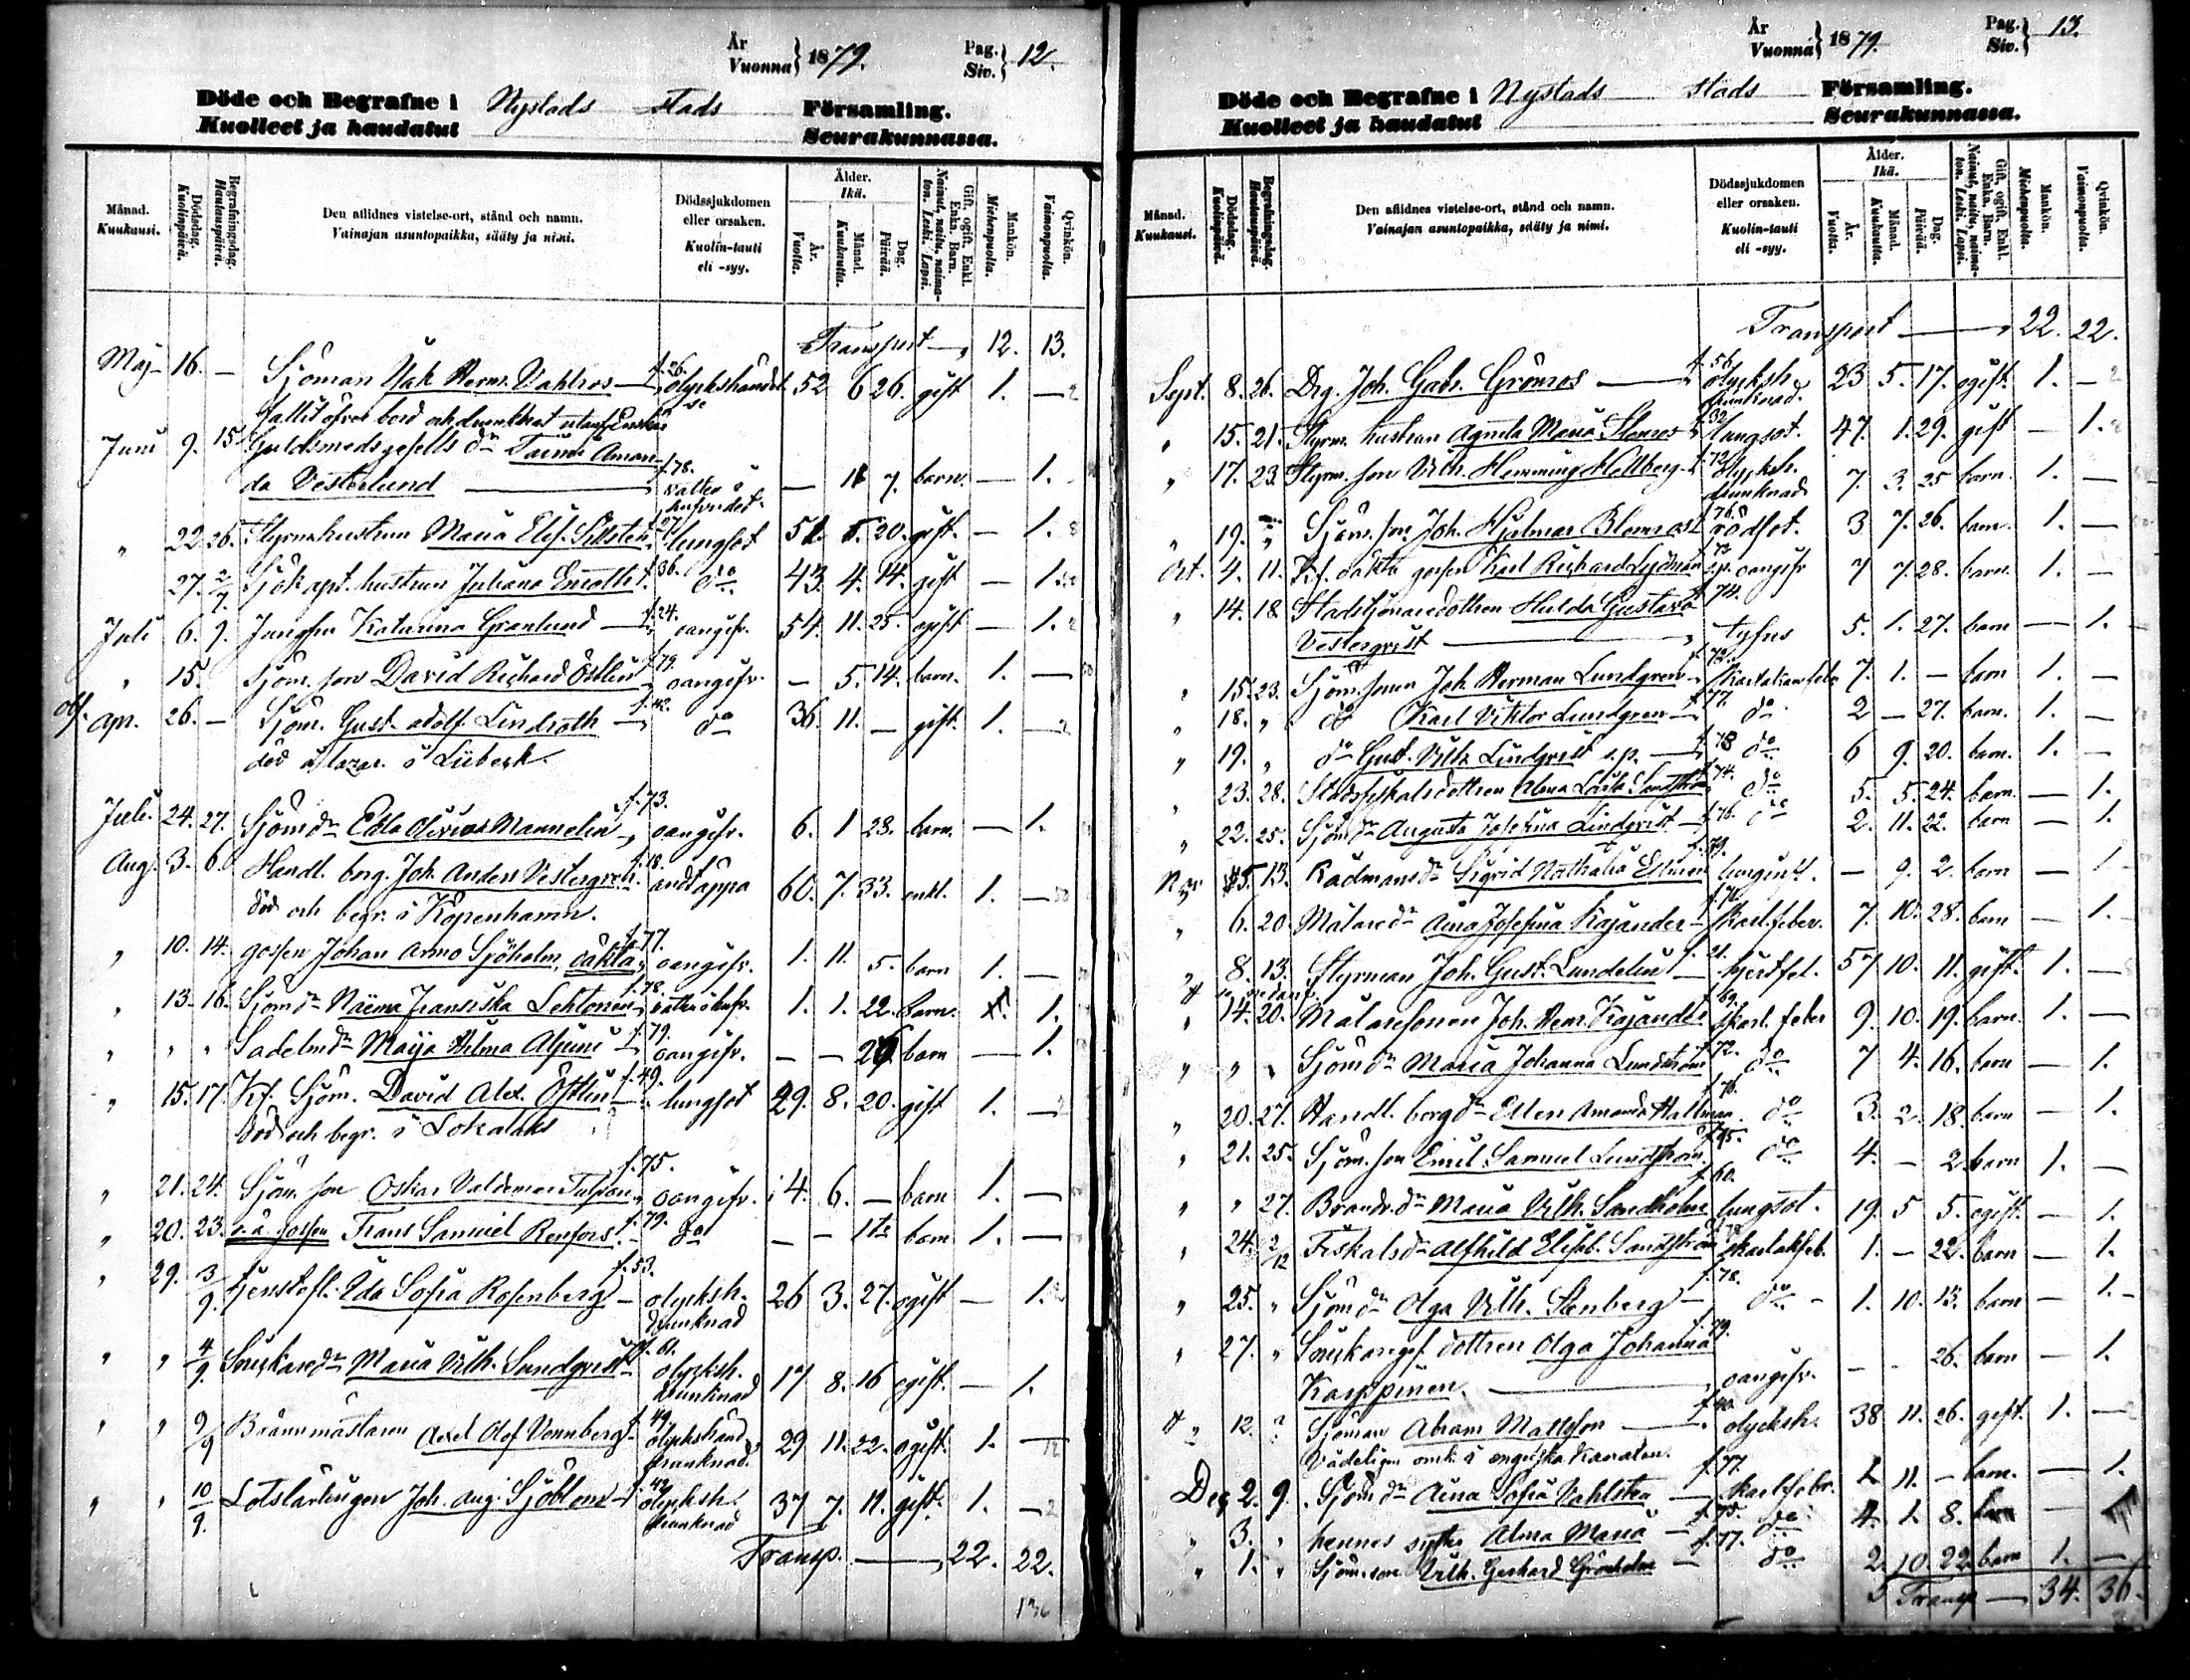 År
Vuonna } 1879. Pag.
Siv. } 12.
Döde och Begrafne i Nystads stads Församling.
Kuolleet ja haudatut Seurakunnassa.
Månad. Kuukausi.
Dödsdag. Kuolinpäivä.
Begrafningsdag. Hautauspäivä.
Den aflidnes vistelse-ort, stånd och namn.
Vainajan asuntopaikka, sääty ja nimi.
Dödssjukdomen eller orsaken.
Kuolin-tauti eli -syy.
Ålder. Ikä.
År. Vuotta.
Månad. Kuukautta.
Dag. Päivää.
Gift, ogift, Enkl. Enka. Barn.
Nainut, naitu, naimaton. Leski. Lapsi.
Mankön. Miehenpuolta.
Qvinkön. Vaimonpuolta.
Transport 12. 13.
Maj 16. — Sjöman Isak Herm. Vahlros f. 26. olyckshändelse 52 6 26. gift 1. —
Juni 9. 15. Guldsmedsgesells dn Taimi Aman-
da Vesterlund f. 78. vatten i hufvudet — 11 7. barn. — 1.
" 22 26. Styrm.hustrun Maria Elis. Sillstén f. 27. lungsot 51. 5. 20. gift. — 1.
27. 2/7. Sjökapt. hustrun Juliana Enroth f. 36. do 43. 4. 14. gift — 1.
Juli 6. 9. Jungfru Katarina Granlund f. 24. oangifv. 54. 11. 25. ogift — 1.
" 15. Sjöm. son David Richard Östlin f. 79. oangifv. — 5. 14. barn. 1. —
obs. Apr. 26. — Sjöm. Gust. Adolf Lindroth f. 42. do 36. 11. — gift. 1. —
död å lazar. i Lübeck.
Juli. 24. 27. Sjöm dn Edla Olivia Mannelin f. 73. oangifv. 6. 1 23. barn. — 1.
Aug. 3. 6. Handl. borg. Joh. Anders Vestergren f. 18. andtäppa 60. 7. 33. enkl. 1. —
död och begr. i Köpenhamn.
" 10. 14. gossen Johan Arno Sjöholm, oäkta f. 77. oangifv. 1. 11. 5. barn 1. —
" 13. 16. Sjöm dn Naëma Fransiska Lehtonen f. 78. vatten i hufv. 1. 1. 22. barn. 1.
" " " Sadelm dn Maija Hilma Aljuni f. 79. oangifv. — — 26 barn — 1.
" 15. 17. Kf. Sjöm. David Alex. Östlin f. 49. lungsot 29. 8. 20. gift 1. —
död och begr. i Lokalaks
" 21. 24. Sjöm. son Oskar Valdemar Tulpan f. 75. oangifv. 4. 6. — barn 1. —
" 20. 23. o.ä. gossen Frans Samuel Renfors f. 79. do — — 1 te barn 1. —
" 29. 3/9. tjenstefl. Ida Sofia Rosenberg f. 53. olycksh. drunknad 26 3. 27. ogift — 1.
" " 4/9. Snickare dn Maria Vilh. Sundqvist f. 61. olycksh. drunknad 17 8. 16 ogift. — 1.
" " 9/9 Brännmästaren Axel Olof Vennberg f. 49. olyckshänd. drunknad. 29 11. 22. ogift. 1. —
" " 10/9. Lotslärlingen Joh. Aug. Sjöblom f. 42. olycksh. drunknad 37 7. 11. gift. 1. —
Transp. 22. 22.
År
Vuonna } 1879. Pag.
Siv. } 13.
Döde och Begrafne i Nystads stads Församling.
Kuolleet ja haudatut Seurakunnassa.
Månad. Kuukausi.
Dödsdag. Kuolinpäivä.
Begrafningsdag. Hautauspäivä.
Den aflidnes vistelse-ort, stånd och namn.
Vainajan asuntopaikka, sääty ja nimi.
Dödssjukdomen eller orsaken.
Kuolin-tauti eli -syy.
Ålder. Ikä.
År. Vuotta.
Månad. Kuukautta.
Dag. Päivää.
Gift, ogift, Enkl. Enka. Barn.
Nainut, naitu, naimaton. Leski. Lapsi.
Mankön. Miehenpuolta.
Qvinkön. Vaimonpuolta.
Transport 22. 22.
Sept. 8. 26. Drg. Joh. Gabr. Grönros f. 56. olycksh. drunknad. 23 5. 17. ogift. 1. —
" 15. 21. Styrm. hustrun Agneta Maria f. 32 lungsot. 47. 1. 29. gift — 1.
" 17. 23. Styrm. son Vilh. Hemming Hellberg f. 72 olycksh. drunknad 7. 3. 25 barn. 1. —
" 19. " Sjöm. son Joh. Hjalmar Blomros f. 76. rödsot. 3 7. 26. barn. 1. —
Oct. 4. 11. Kf. oäkta gossen Karl Richard Sjöman f. 72 oangifv 7 7. 28. barn. 1. —
" 14. 18 Stadstjenaredottren Hulda Gustava f. 74.
Vestergvist tyfus 5. 1. 27. barn — 1.
" 15. 23. Sjöm. sonen Joh. Herman Lundgren f. 72. skarlakansfeb. 7. 1. — barn 1. —
" 18. " do Karl Viktor Lundgren f. 77. do 2 — 27. barn. 1. —
" 19. " do Gust. Vilh. Lindqvist f. 73 do 6 9. 20. barn. 1. —
" 23. 28. Stadsfiskalsdottren Alma Lovisa Sandström f. 74. do 5. 5. 24. barn. — 1.
" 22. 25. Sjöm dn Augusta Josefina Lindqvist f. 76. do 2. 11. 22. barn — 1.
Nov 5. 13. Rådmans dn Sigrid Nathalia f. 79. — 9. 2. barn — 1.
" 6. 20 Målare dn Aina Josefina Kajander f. 72. skarl. feber. 7. 10. 28. barn — 1.
" 8. 13. Styrman Joh. Gust. Lundelin f. 21. hjertfel. 57 10. 11. gift. 1. —
" 14. 20. Målaresonen Joh. Herm. Kajander f. 69. skarl. feber 9. 10. 19. barn. 1. —
" " " Sjöm dn Maria Johanna Lundström f. 72. do 7 4. 16. barn — 1.
" 20. 27. Handl. borg dn Ellen Amanda Hallman f. 76. do 3. 2. 18. barn — 1.
" 21. 25. Sjöm. son Emil Samuel Lundström f. 75. do 4. — 2 barn 1. —
" " 27. Brandv. dn Maria Vilh. Sandholm f. 60. lungsot. 19. 5 5. ogift. — 1.
" 24. 2/12 Fiskals dn Alfhild Elisab. Sandström f. 78 skarlakfeb. 1. — 22. barn — 1.
" 25. " Sjöm dn Olga Vilh. Stenberg f. 78. do 1. 10. 13. barn — 1.
" 27. " Snickareges. dottren Olga Johanna f. 79.
Karppinen. oangifv. — — 26. barn — 1.
" 12. ? Sjöman Abram Mattsson f. 40. olycksh. 38 11. 26. gift. 1. —
Vådeligen omk. i engelska Kanalen.
Dec 2. 9. Sjöm dn Aina Sofia Vahlsten f. 77. skarlfebr. 2 11. — barn. — 1.
" 3. " hennes syster Alma Maria f. 75. do 4. 1. 8. barn —
" 1. " Sjöm. son Vilh. Gerhard Grönholm f. 77. do 2. 10. 22 barn 1. —
Transp 34. 36.